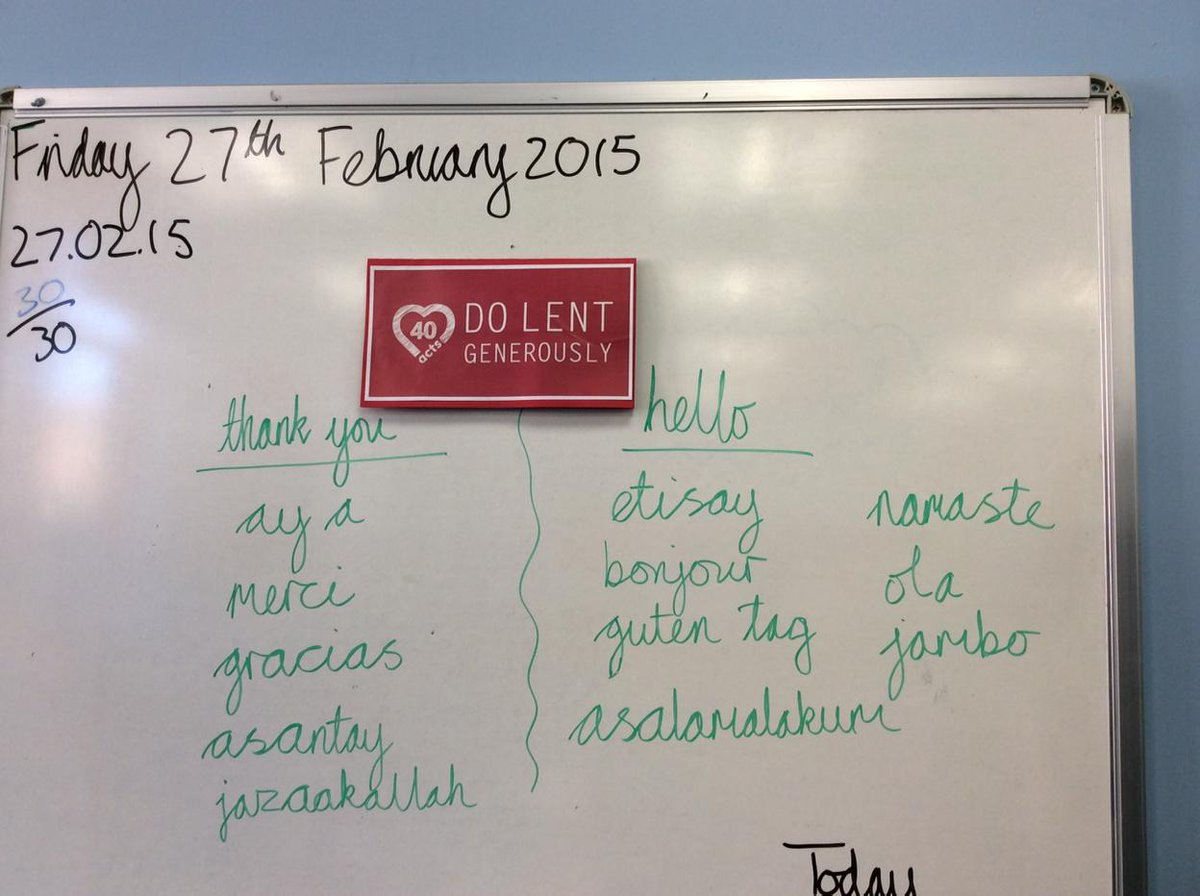 Friday 27th February 2015
27.02.15
30
30
40
acts
DO LENT
GENEROUSLY
thank you
ay a
merci
gracias
asantay
jazaakallah
hello
etisay
bonjour
guten tag
asalamalakum
namaste
ola
jambo
Today